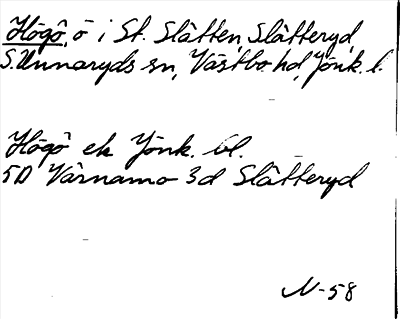 Högö, ö i St. Slätten, Slätteryd,
S. Unnaryds sn, Västbo hd, Jönk. l.
Högö ek Jönk. bl.
5D Värnamo 3d Slätteryd
N-58